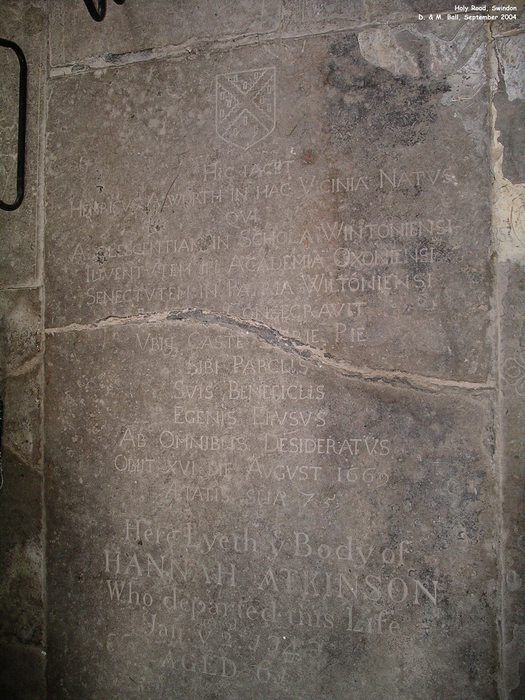 Holy Rood, Swindon
D. & M. Ball, September 2004
HIC IACET
HENRICVS ALWORTH IN HAC VICINIA NATVS
QVI
ADOLESCENTIAM IN SCHOLA WINTONIENSI
IUVENTVTEM IN ACADEMIA OXONIENSI
SENECTVTEM IN PATRIA WILTONIENSI
CONSECRAVIT
VBIQ CASTE PIE
SIBI PARCUS
SVIS BENEFICUS
EGENIS EFFUSVS
AB OMNIBUS DESIDERATVS
OBIIT XVI DIE AUGVST 1669
ÆTATIS SUÆ
Here Lyeth y Body of
HANNAH ATKINSON
Who departed this Life
Jan. y
AGED